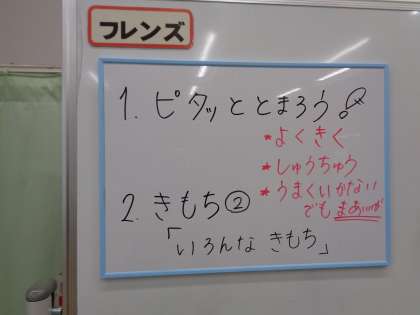 フレンズ
1. ピタッととまろう!
*よくきく
*しゅうちゅう
*うまくいかない
でもまあいいか
2. きもち②
「いろんな きもち」